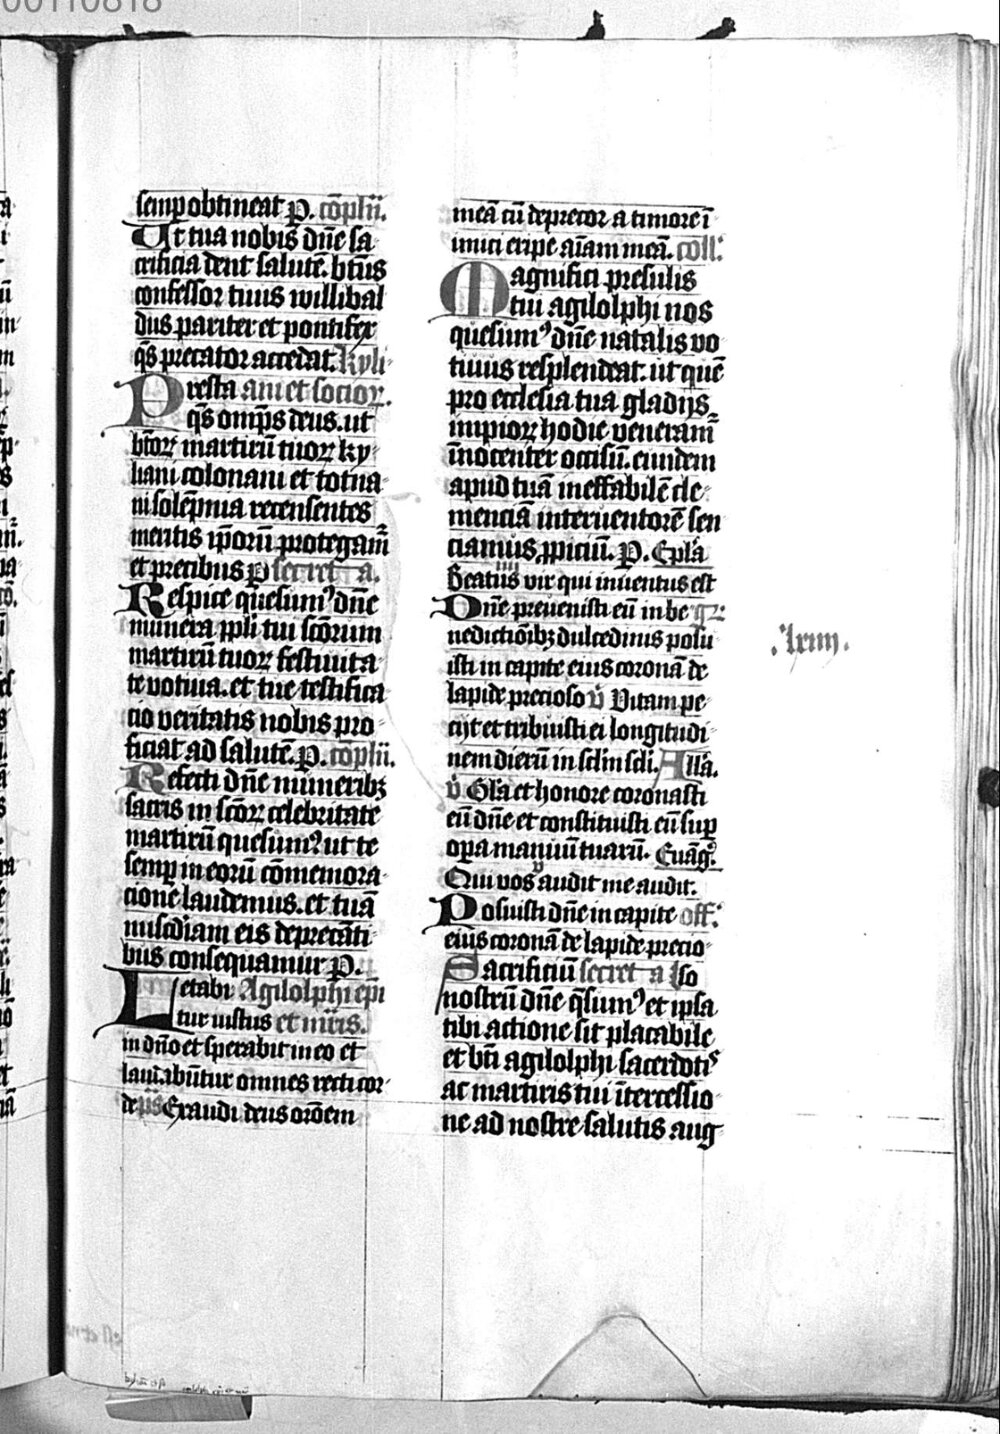 semp obtineat p. co̅plīī.
Ut tua nobis dn̄e sa
crificia dent salutē. bt̄us
confessor tuus willibal
dus pariter et pontifex
q̄s precator accedat. Kyli
Presta ani et socior̄.
q̄s omp̄s deus. ut
bt̄orꝝ martirū tuorꝝ ky
liani colonani et totna
ni solēpnia recensentes
mentis ip̄orū protegam̄
et precibus p̄ secret a.
Respice quesumꝰ dn̄e
munera ppl̄i tui sc̄orum
martirū tuorꝝ festiuita
te votiua. et tue testifica
cio veritatis nobis pro
ficiat ad salutē. p. co̅plīī.
Refecti dn̄e muneribꝫ
sacris in sc̄orꝝ celebritate
martirū quesumꝰ ut te
semp in eorū cōmemora
cione laudemus. et tuā
mis̄cdiam eis deprecāti
bus consequamur p.
Letabi Agilolphi ep̄i
tur iustus et mr̄is.
in dn̄o et sperabit in eo et
laudabūtur omnes recti cor
de p̄s Exaudi deus or̄oem
meā cū deprecor a timore ī
imici eripe aīam meā. coll:
Magnifici presulis
tui agilolphi nos
quesumꝰ dn̄e natalis vo
tiuus resplendeat. ut quē
pro ecclesia tua gladijs
impiorꝝ hodie veneram̄
īnocenter occisū. eiusdem
apud tuā ineffabilē cle
menciā interuentorē sen
ciamus ꝓpiciū. p. Ep̄la
Beatus vir qui inuentus est
Dn̄e preuenisti eū in be gr:
nedictiōibꝫ dulcedinis posu
isti in capite eius coronā de
lapide precioso v̄ Vitam pe
cijt et tribuisti ei longitudi
nem dierū in sc̄lm sc̄li. All̄a.
v̄ Gl̄a et honore coronasti
eū dn̄e et constituisti eū sup
opa manuū tuarū. Euāg:
Qui vos audit me audit.
Posuisti dn̄e in capite off:
eius coronā de lapide precio
Sacrificiū secret a so
nostrū dn̄e q̄sumꝰ et ipsa
tibi actione sit placabile
et bt̄i agilolphi sacerdotis
ac martiris tui īterressio
ne ad nostre salutis aug